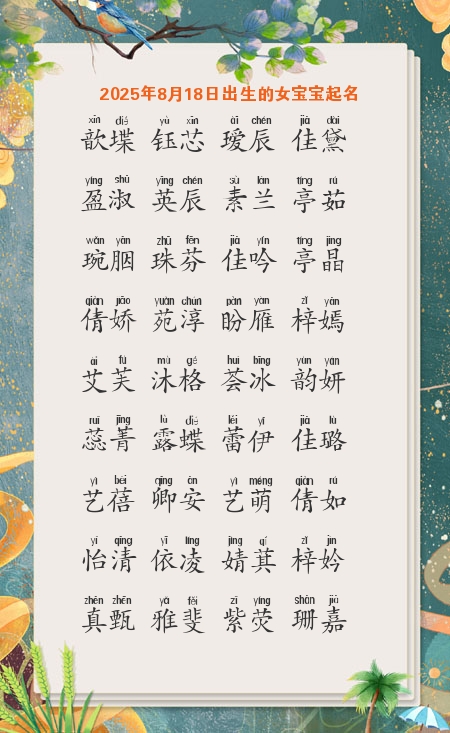 2025年8月18日出生的女宝宝起名
xīn dié yù xīn ài chén jiā dài
歆堞 钰芯 瑷辰 佳黛
yíng shū yīng chén sù lán tíng rú
盈淑 英辰 素兰 亭茹
wǎn yān zhū fēn jiā yín tíng jīng
琬胭 珠芬 佳吟 亭晶
qiàn jiāo yuàn chún pàn yàn zǐ yān
倩娇 苑淳 盼雁 梓嫣
ài fú mù gé huì bīng yùn yán
艾芙 沐格 荟冰 韵妍
ruǐ jīng lù dié lěi yī jiā lù
蕊菁 露蝶 蕾伊 佳璐
yì bèi qīng ān yì méng qiàn rú
艺蓓 卿安 艺萌 倩如
yí qīng yī líng jìng qí zǐ jìn
怡清 依凌 婧萁 梓妗
zhēn zhēn yǎ fěi zǐ yíng shān jiā
真甄 雅斐 紫荧 珊嘉